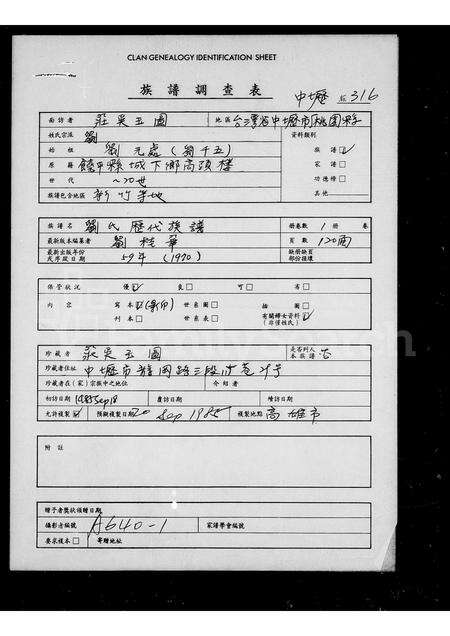 CLAN GENEALOGY IDENTIFICATION SHEET
族譜調查表 中壢 316
面訪者 莊吳玉圖 地區 台灣省中壢市桃園縣
姓氏宗派 劉 資料類別
始祖 劉元處(劉千五) 族譜☑
原籍 饒平縣城下鄉高頭樓 家譜□
世代 ~20世 功德榜□
族譜包含地區 新竹等地 其他
族譜名 劉氏歷代族譜 冊卷數 1 冊 卷
最新版本編纂者 劉桂華 頁數 120面
最新出版年份或序跋日期 59年 (1970) 缺冊缺頁部份描述
保管狀況 優☑ 良□ 可□ 劣□
內容 寫本☑(影印) 世系圖□ 插圖□
刊本□ 世系表□ 有關婦女資料☑(非僅姓氏)
珍藏者 莊吳玉圖 是否列入本族譜 否
珍藏者住址 中壢市 路三段 巷29号
珍藏者在(家)宗族中之地位 介紹者
初訪日期 1985 Sep 18 複訪日期 續訪日期
允許複製☑ 預擬複製日期 20 Sep 1985 複製地點 高雄市
附註
贈予者獎狀頒贈日期
攝影者編號 A640-1 家譜學會編號
要求複本□ 寄贈地址